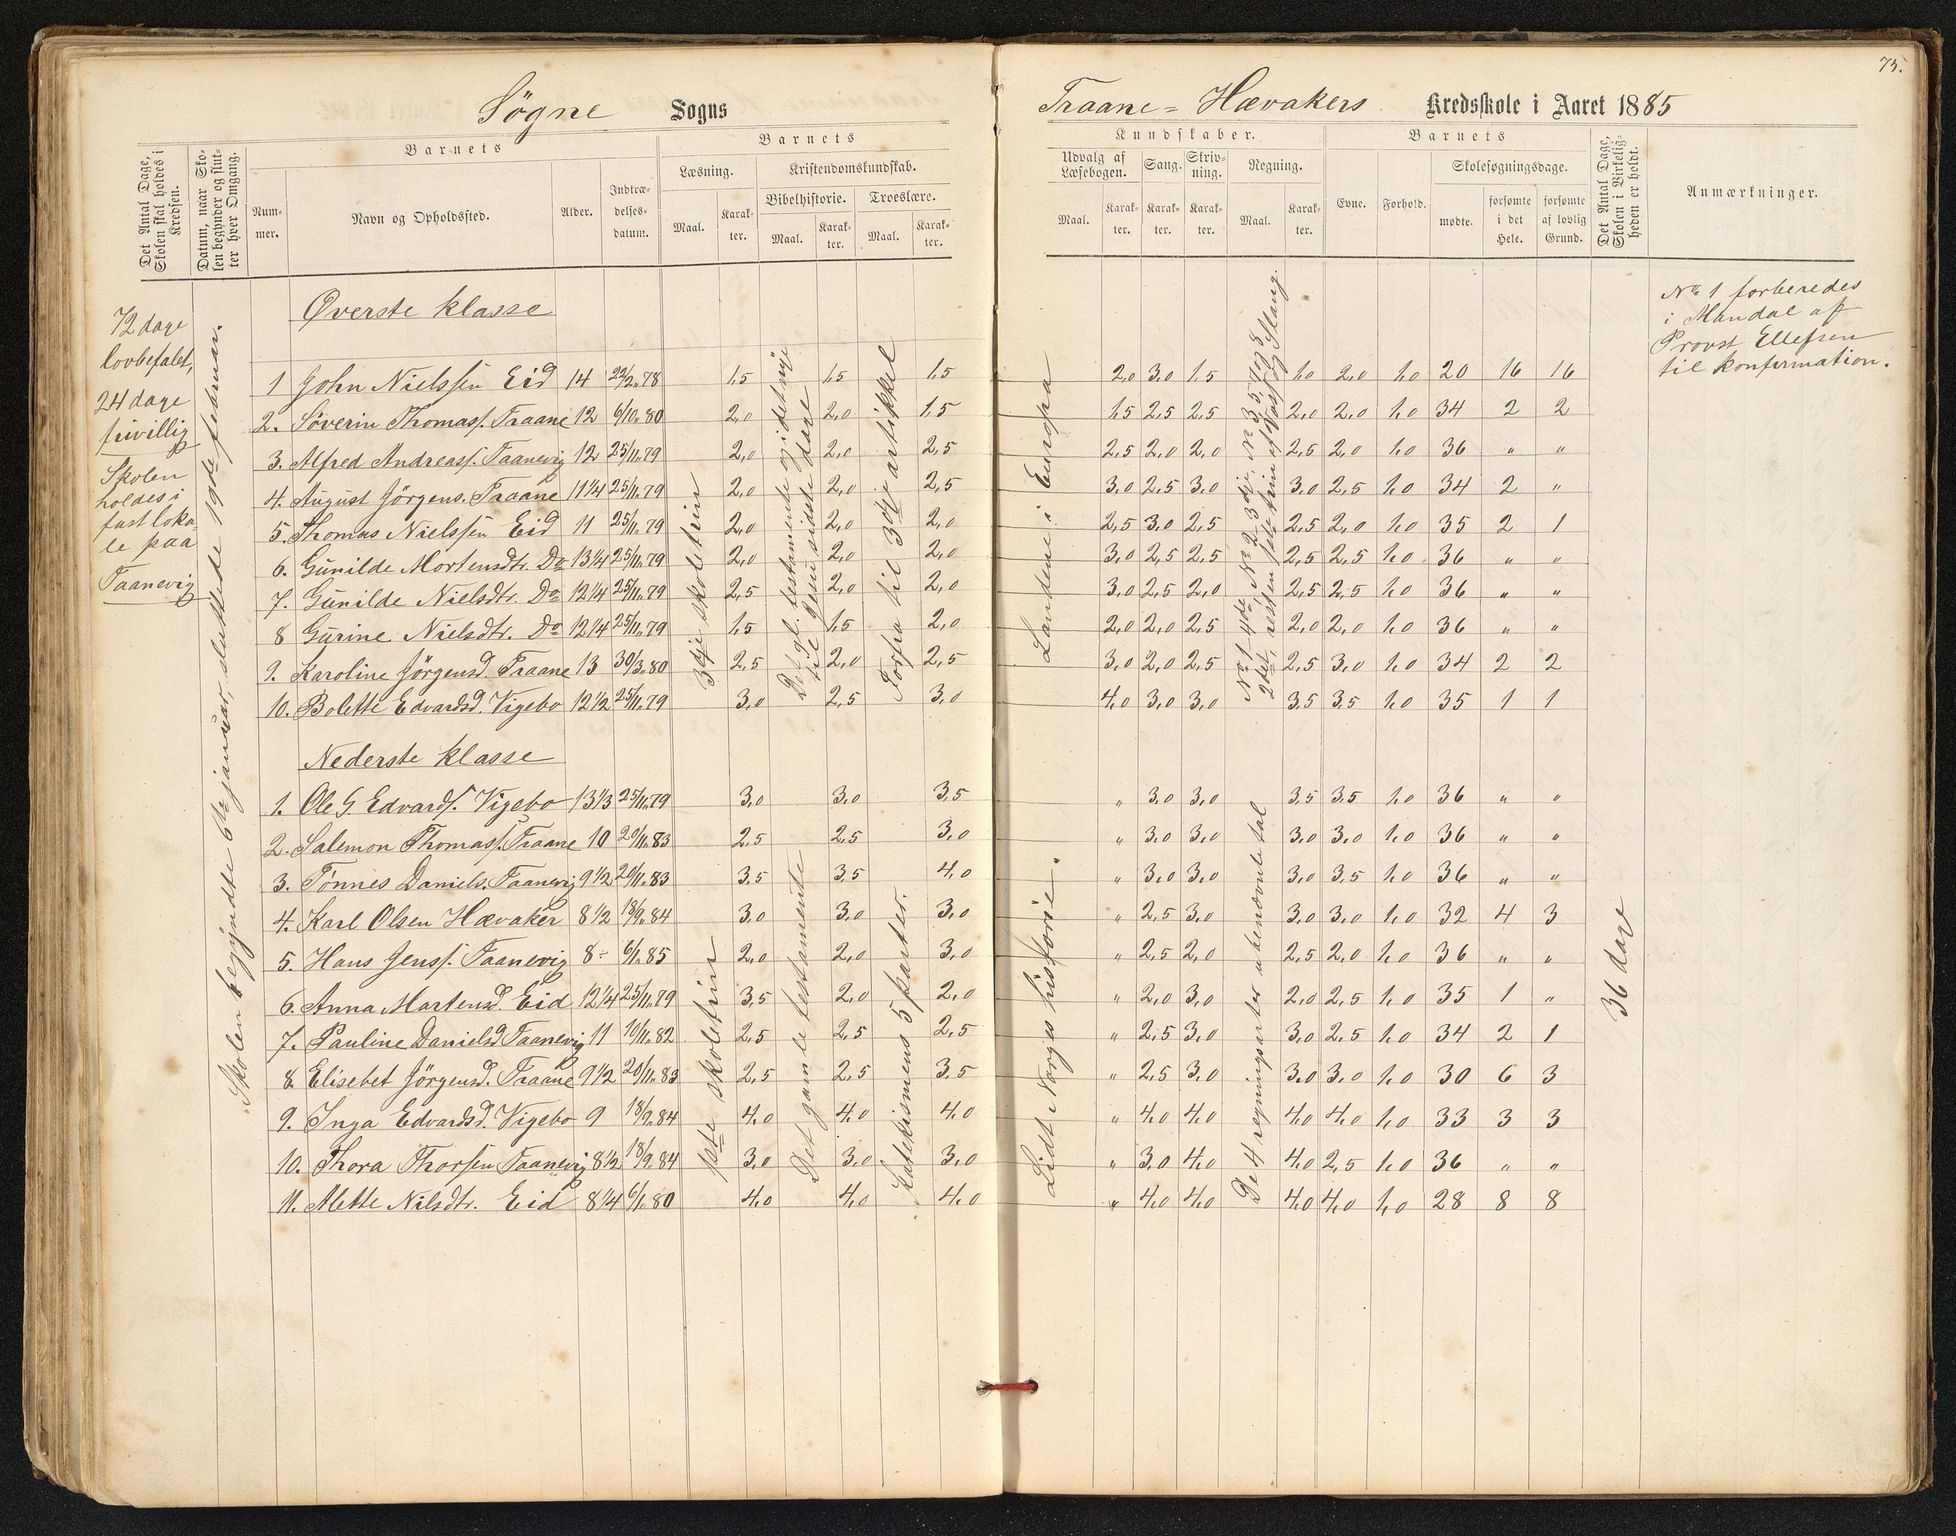 75.
Søgne Sogns
Traane=Hævakers Kredsskole i Aaret 1885
Det Antal Dage, Skolen skal holdes i Kredsen.
Datum, naar Skolen begynder og slutter hver Omgang.
Barnets
Nummer.
Navn og Opholdssted.
Alder.
Indtrædelsesdatum.
Barnets
Læsning.
Maal.
Karakter.
Kristendomskundskab.
Bibelhistorie.
Maal.
Karakter.
Troeslære.
Maal.
Karakter.
Kundskaber.
Udvalg af Læsebogen.
Maal.
Karakter.
Sang.
Karakter.
Skrivning.
Karakter.
Regning.
Maal.
Karakter.
Barnets
Evne.
Forhold.
Skolesøgningsdage.
mødte.
forsømte i det Hele.
forsømte af lovlig Grund.
Det Antal Dage, Skolen i Virkeligheden er holdt.
Anmærkninger.
72 dage
lovbefalet,
24 dage
frivillig
Skolen
holdes i
fast loka-
le paa
Taanevig
Skolen begyndte 6te januar, sluttede 19de februar.
Øverste klasse
1 John Nielssen Eid 14 22/2.78 1,5 1,5 1,5 2,0 3,0 1,5 1,0 2,0 1,0 20 16 16
2. Söverin Thomass. Traane 12 6/10.80 2,0 2,0 1,5 1,5 2,5 2,5 2,0 2,0 1,0 34 2 2
3. Alfred Andreass. Taanevig 12 25/11.79 2,0 2,0 2,5 2,5 2,0 2,0 2,5 2,0 1,0 36 " "
4. August Jörgens. Traane 11 1/4 25/11.79 2,0 2,0 2,5 3,0 2,5 3,0 3,0 2,5 1,0 34 2 "
5. Thomas Nielssen Eid 11 25/11.79 2,0 2,0 2,0 2,5 3,0 2,5 2,5 2,0 1,0 35 2 1
6. Gunilde Mortensdtr. Do 13 1/4 25/11.79 2,0 2,0 2,0 3,0 2,5 2,5 2,5 2,5 1,0 36 " "
7. Gunilde Nielsdtr. Do 12 1/4 25/11.79 2,5 2,0 2,0 3,0 2,5 2,0 2,5 2,5 1,0 36 " "
8 Gurine Nielsdtr. Do 12 1/4 25/11.79 1,5 1,5 2,0 2,0 2,0 2,5 2,0 2,0 1,0 36 " "
9. Karoline Jörgensd. Traane 13 30/3.80 2,5 2,0 2,5 3,0 2,0 2,5 2,5 3,0 1,0 34 2 2
10. Bolette Edvardsd. Vigebo 12 1/2 25/11.79 3,0 2,5 3,0 4,0 3,0 3,0 3,5 3,5 1,0 35 1 1
3dje skoletrin
Det gl. testamente og i det nye
til Jesu sidste dage
Forfra til 3dje artikkel
Landene i Europa
No 1 4de, No 2 3dje, No 3 5. og 8
2det, resten
No 1 forberedes
i Mandal af
Provst Ellefsen
til konfirmation.
Nederste klasse
1. Ole G. Edvards. Vigebo 13 1/3 25/11.79 3,0 3,0 3,5 " 3,0 3,0 3,5 3,5 1,0 36 " "
2. Salemon Thomass. Traane 10 20/11.83 2,5 2,5 3,0 " 3,0 3,0 3,0 3,0 1,0 36 " "
3. Tönnes Daniels. Taanevig 9 1/2 20/11.83 3,5 3,5 4,0 " 3,0 3,0 3,0 3,5 1,0 36 " "
4. Karl Olsen Hævaker 8 1/2 18/9.84 3,0 3,0 3,0 " 2,5 3,0 3,0 3,0 1,0 32 4 3
5. Hans Jenss. Taanevig 8 ÷ 6/1.85 2,0 2,0 3,0 " 2,5 2,0 2,5 2,0 1,0 36 " "
6. Anna Martensd. Eid 12 1/4 25/11.79 3,5 2,0 2,0 " 2,0 3,0 2,0 2,5 1,0 35 1 "
7. Pauline Danielsd Taanevig 11 10/11.82 2,5 2,5 2,5 " 2,5 3,0 3,0 2,5 1,0 34 2 1
8. Elisebet Jörgensd. Traane 9 1/2 20/11.83 2,5 2,5 3,5 " 2,5 3,0 3,0 3,0 1,0 30 6 3
9. Inga Edvardsd. Vigebo 9 18/9.84 4,0 4,0 4,0 " 4,0 4,0 4,0 4,0 1,0 33 3 3
10. Thora Thorsen Taanevig 8 1/2 18/9.84 3,0 3,0 3,0 " 3,0 4,0 4,0 2,5 1,0 36 " "
11. Mette Nilsdtr. Eid 8 1/4 6/1.80 4,0 4,0 4,0 " 4,0 4,0 4,0 4,0 1,0 28 8 8
1ste skoletrin
Det gamle testamente
Katekismens 5 parter.
Lidt Norges historie.
De 4 regningsarter ubenævnte tal
36 dage